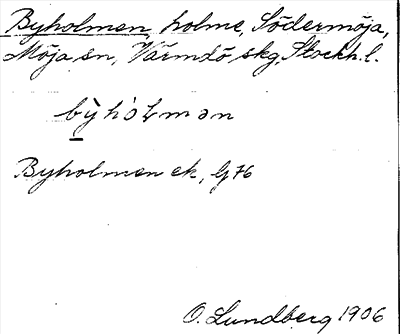 Byholmen, holme, Södermöja,
Möja sn, Värmdö skg, Stockh. l.
bỳhòłmən
Byholmen ek, G 76
O. Lundberg 1906